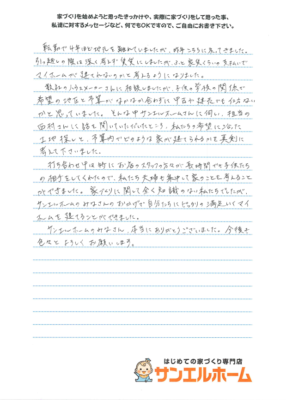 家づくりを始めようと思ったきっかけや、実際に家づくりをして思った事、
私達に対するメッセージなど、何でもOKですので、ご自由にお書き下さい。
転勤で4年ほど地元を離れていましたが、昨年こちらに戻ってきました。
引っ越しの際は深く考えず賃貸にしましたが、ふと家賃くらいの支払いで
マイホームが建てれないものかと考えるようになりました。
数社のハウスメーカーさんに相談しましたが、子供の学校の関係で
希望の地区と予算がなかなか合わずに中古か建売かも仕方ない
かと思っていました。そんな中サンエルホームさんに伺い、担当の
西村さんに話を聞いていただいたところ、私たちの希望に沿った
土地探しと、予算内でどのような家が建てられるかを真剣に
考えて下さいました。
打ち合わせ中は時にお店のスタッフの方が長時間でも子供たち
の相手をしてくれたので、私たち夫婦も集中して家のことを考えること
ができました。家づくりに関して全く知識のない私たちでしたが、
サンエルホームのみなさんのおかげで自分たちにぴったりの満足いくマイ
ホームを建てることができました。
サンエルホームのみなさん、本当にありがとうございました。今後も
色々とよろしくお願いします。
はじめての家づくり専門店
サンエルホーム